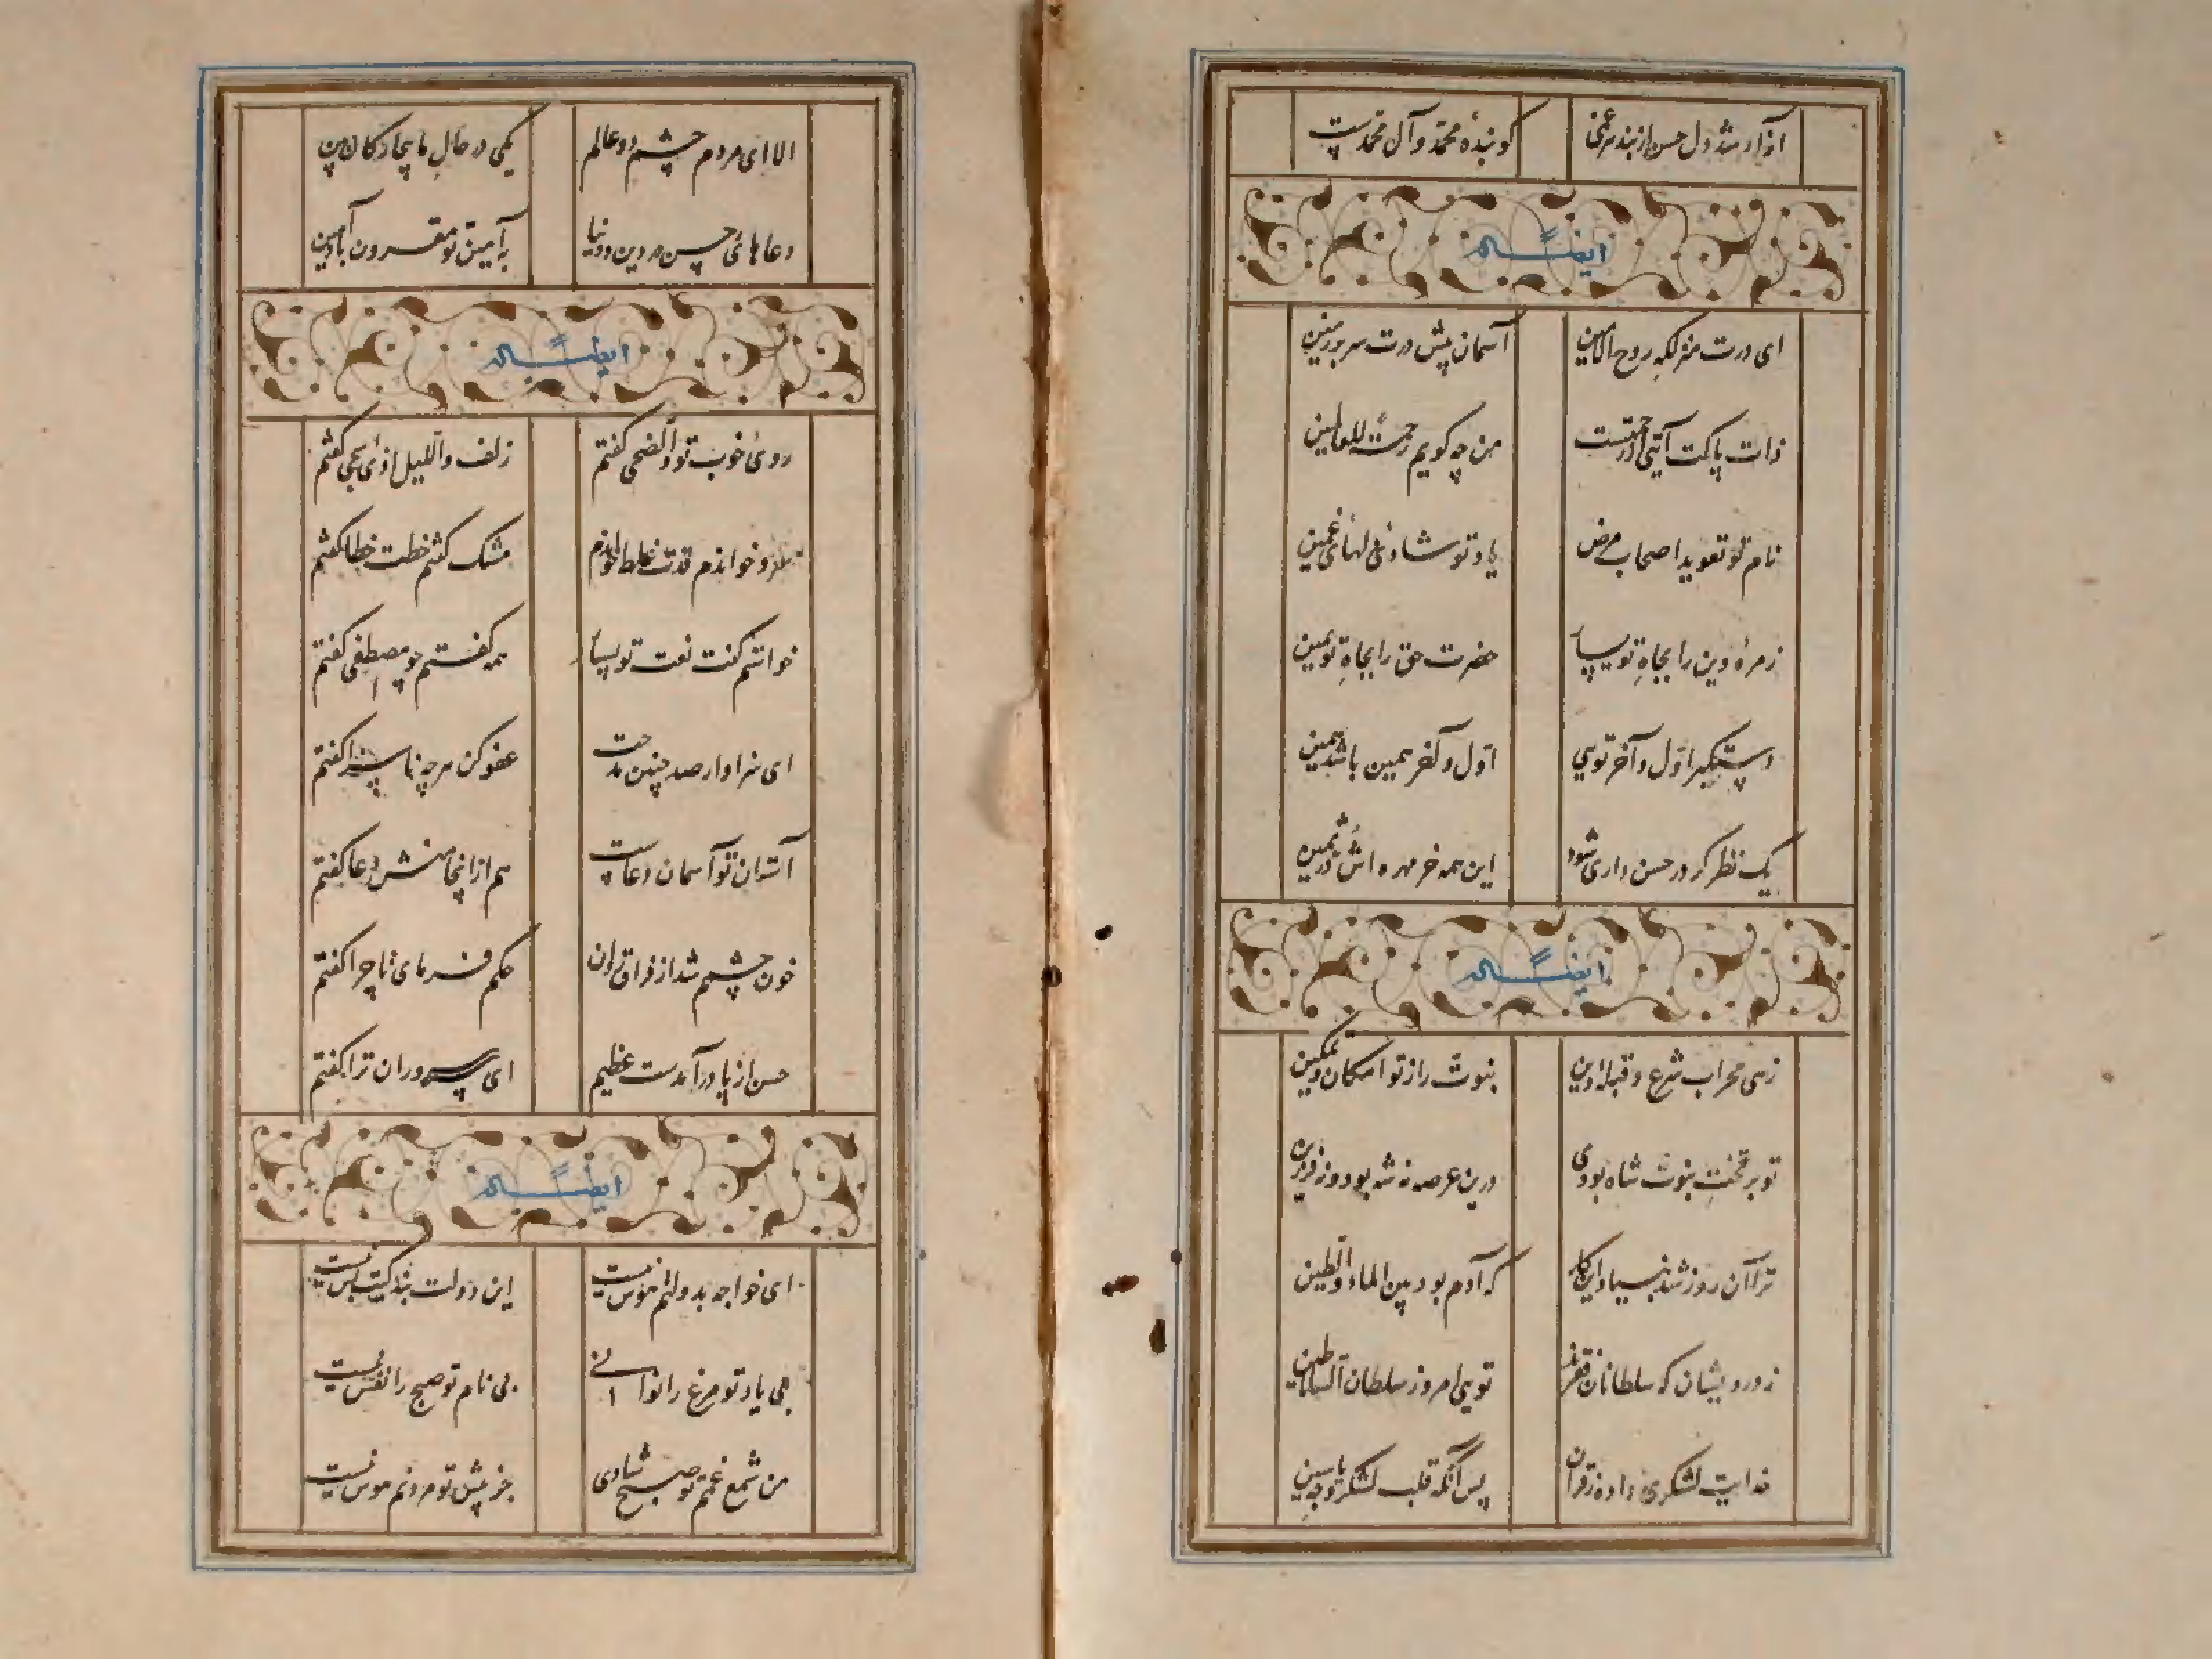 آزاد شد دل حسن از بند هر غمی
کو بندهٔ محمد و آل محمدست
ایضاً له
ای درت منزلگه روح الامین
آسمان پیش درت سر بر زمین
ذات پاکت آیتی از رحمتست
من چه گویم رحمة للعالمین
نام تو تعویذ اصحاب مرض
یاد تو شادی دلهای غمین
زمرهٔ دین را بجاه تو یسار
حضرت حق را بجاه تو یمین
دستگیر اول و آخر تویی
اول و آخر همین باشد همین
یک نظر گر در حسن داری شود
این همه خرمهره‌اش در ثمین
ایضاً له
زهی محراب شرع و قبلهٔ دین
نبوت را ز تو امکان و تمکین
تو بر تخت نبوت شاه بودی
درین عرصه نه شه بود و نه فرزین
ترا آن روز شد بنیاد این کار
که آدم بود بین الماء والطین
ز درویشان که سلطانان فقرند
تویی امروز سلطان السلاطین
خدایت لشکری داده ز قرآن
پس آنگه قلب لشکر کرده یاسین
الا ای مردم چشم دو عالم
یکی در حال ما بیچارگان بین
دعاهای حسن در دین و دنیا
به آمین تو مقرون باد آمین
ایضاً له
روی خوب تو والضحی گفتم
زلف واللیل اذا سجی گفتم
سرو خواندم قدت غلط خواندم
مشک گفتم خطت خطا گفتم
خواستم گفت نعت تو بسیار
همه گفتم چو مصطفی گفتم
ای سزاوار صد چنین مدحت
عفو کن هرچه ناسزا گفتم
آستان تو آسمان دعاست
هم از اینجا منش دعا گفتم
خون چشمم شد از فراق روان
حکم فرمای ماجرا گفتم
حسن از پا درآمدست عظیم
ای سر سروران ترا گفتم
ایضاً له
ای خواجه بدولتم هوس نیست
این دولت بندگیت بس نیست
بی یاد تو مرغ را نوا نی
بی نام تو صبح را نفس نیست
من شمع غمم تو صبح شادی
جز پیش تو مردنم هوس نیست